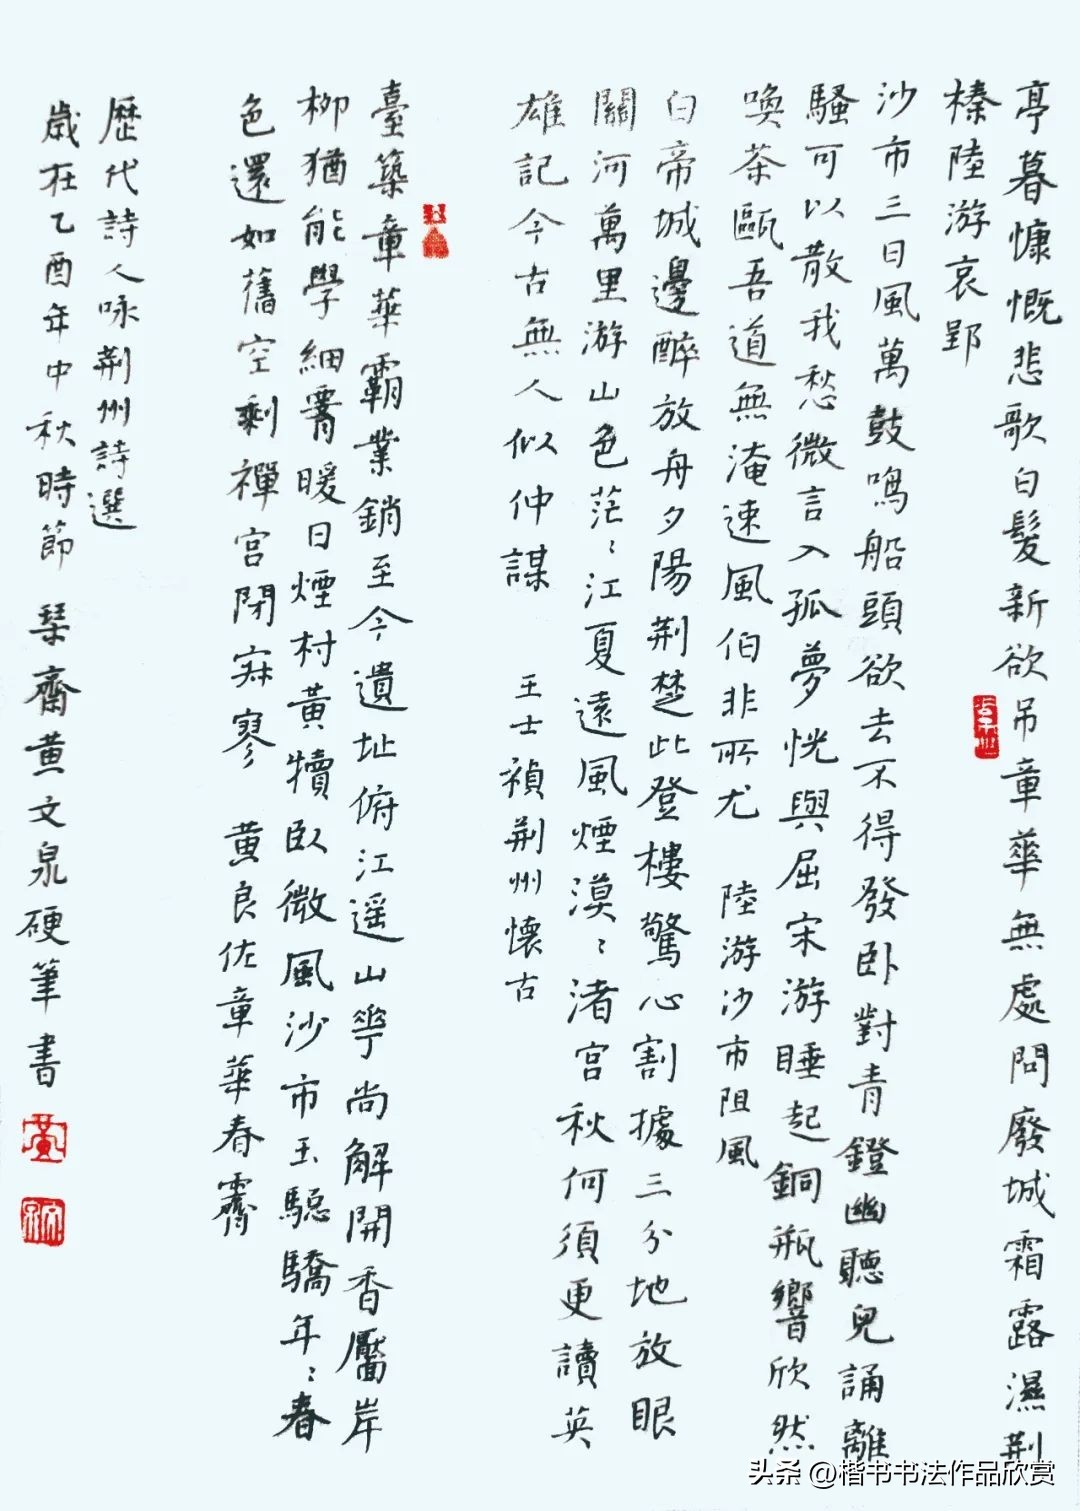 亭暮慷慨悲歌白髮新欲吊章華無處問廢城霜露濕荆
榛陸游哀郢
沙市三日風萬鼓鳴船頭欲去不得發卧對青鐙幽聽兒誦離
騷可以散我愁微言入孤夢恍與屈宋游睡起銅瓶響欣然
喚茶甌吾道無淹速風伯非所尤 陸游沙市阻風
白帝城邊醉放舟夕陽荆楚此登樓驚心割據三分地放眼
關河萬里游山色茫﹕江夏遠風煙漠﹕渚宫秋何須更讀英
雄記今古無人似仲謀 王士禎荆州懷古
臺築章華霸業銷至今遺址俯江遥山花尚解開香靨岸
柳猶能學細腰暖日煙村黃犢臥微風沙市玉驄驕年﹕春
色還如舊空剩禪宫閉寂寥 黄良佐章華春霽
歷代詩人咏荆州詩選
歲在乙酉年中秋時節 琹齋黄文泉硬筆書
黄
头条 @楷书书法作品欣赏